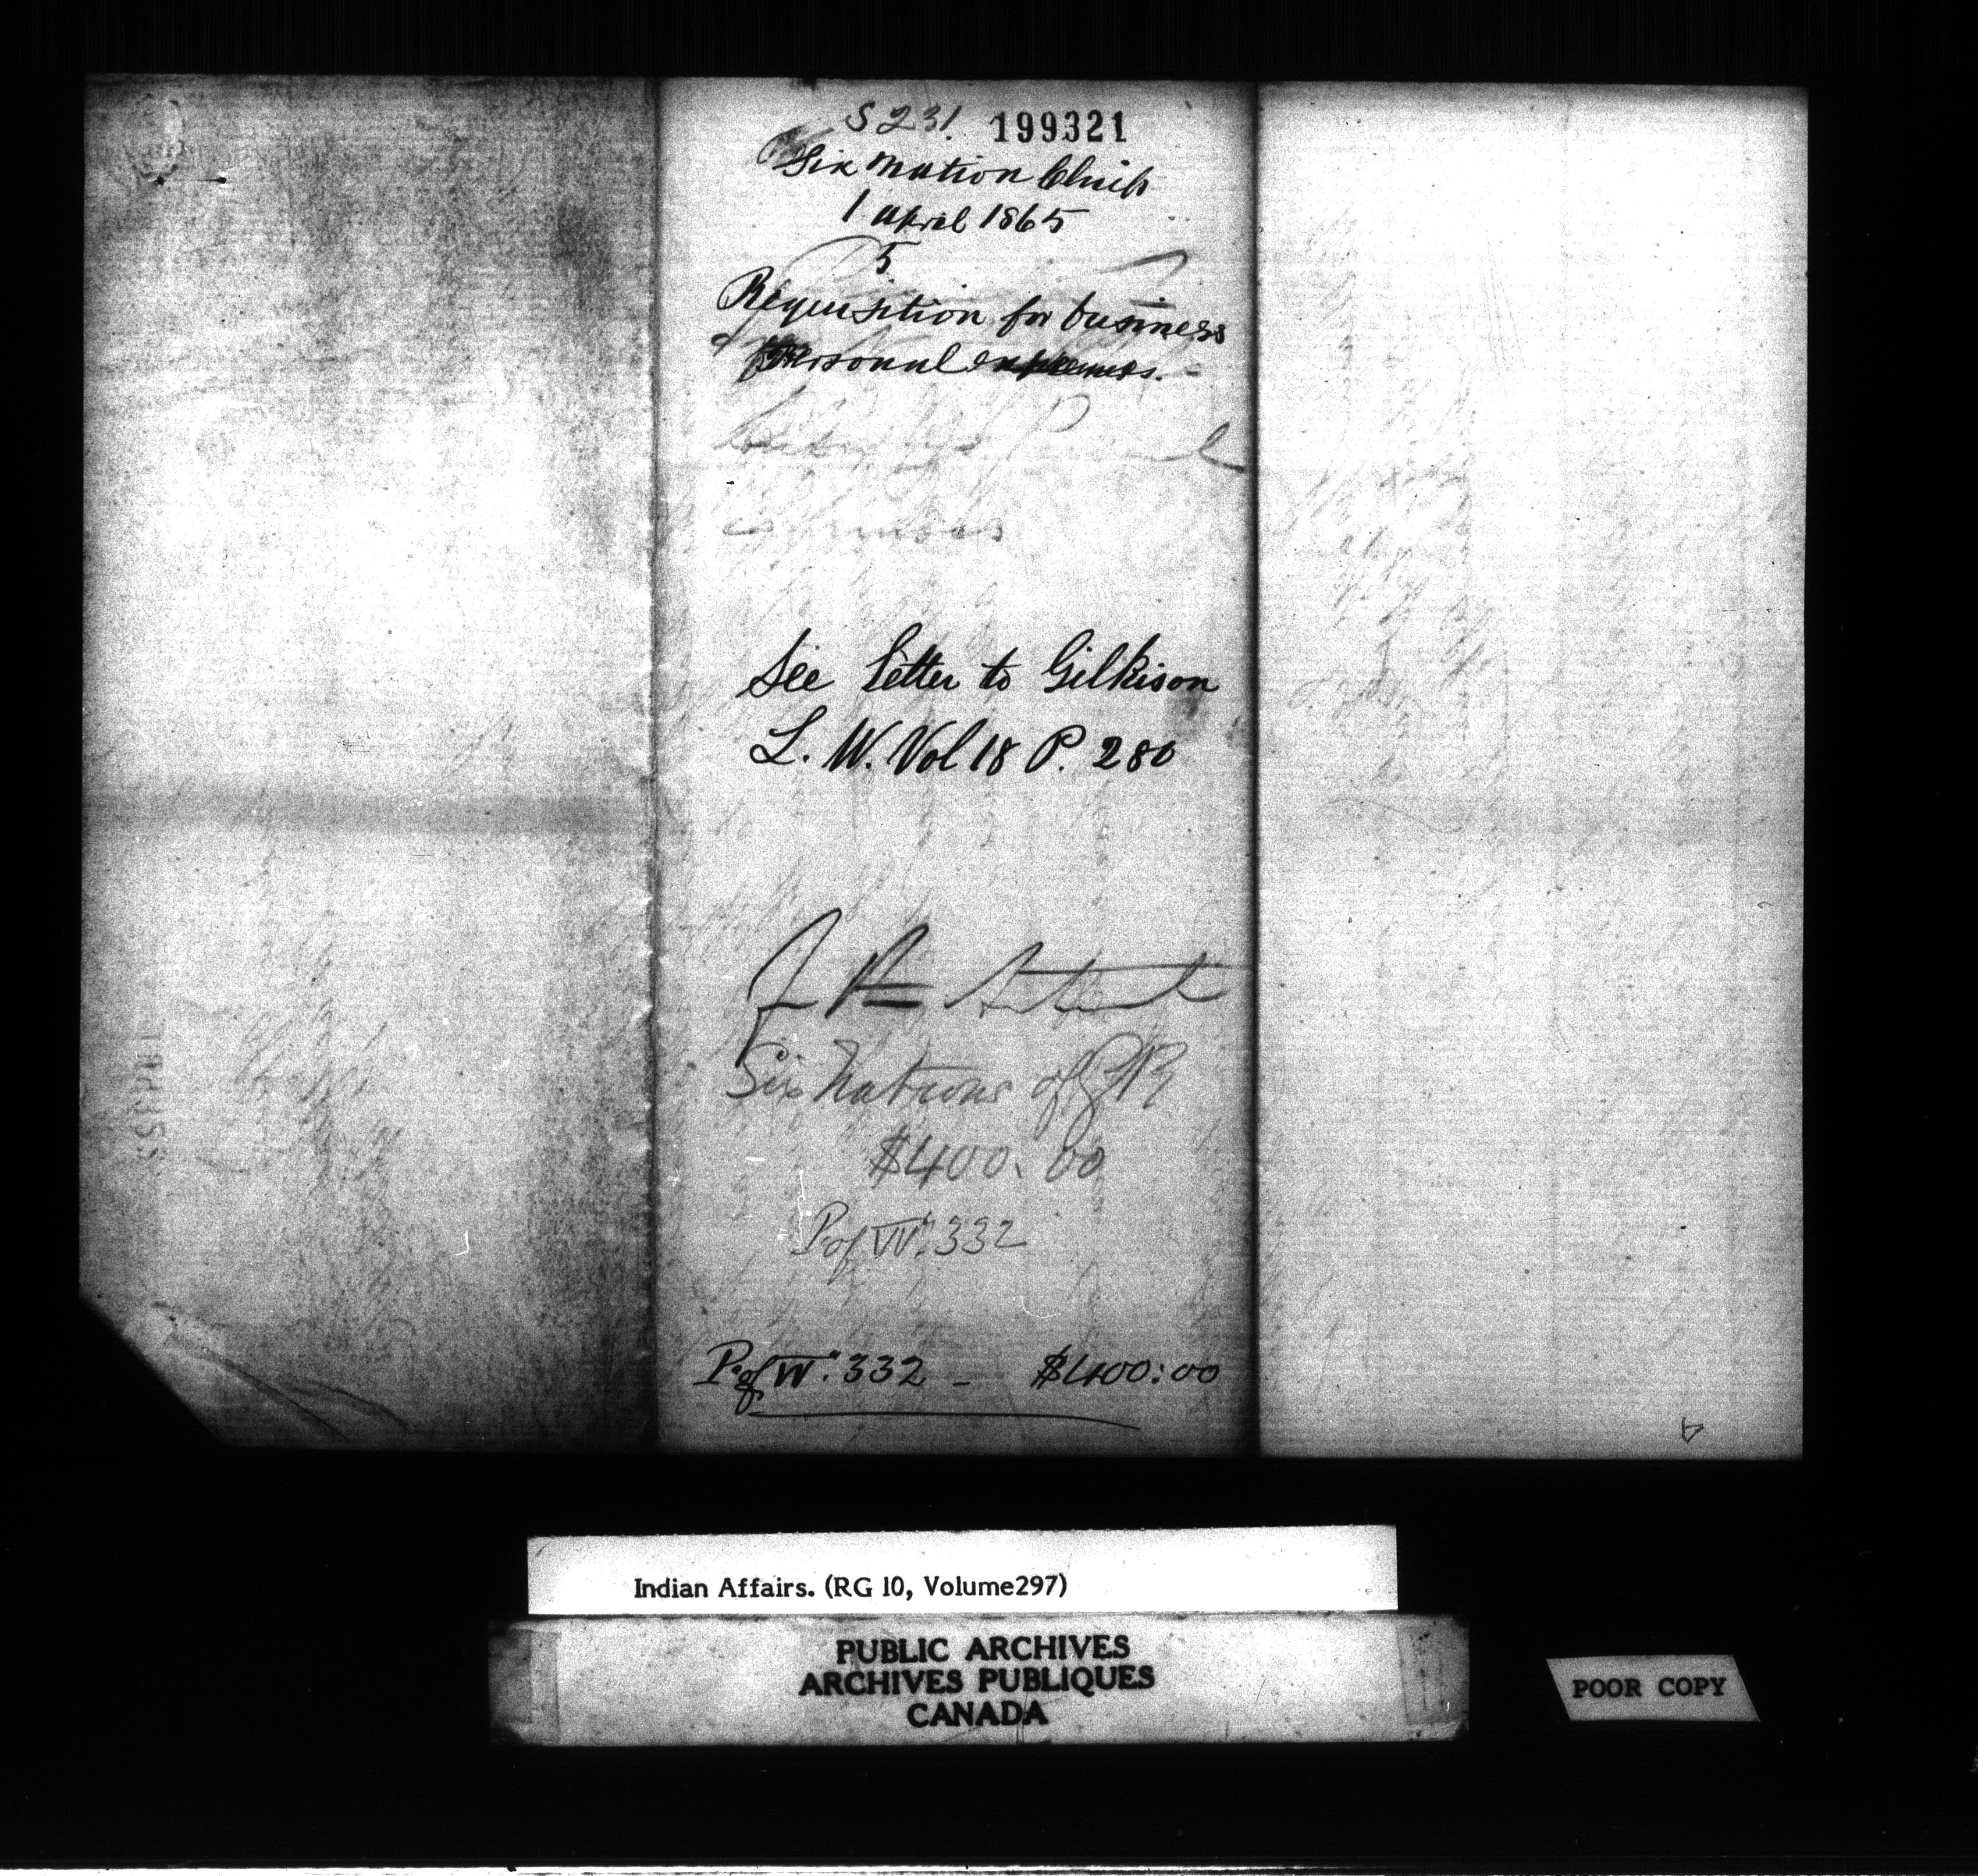 S 231. 199321
Six Nation Chiefs
1 April 1865
5
Requisition for business
& personal expenses.
See letter to Gilkison
L. W. Vol 18 P. 280
Six Nations of G R
$400.00
P of Wt. 332
P of Wt. 332 - $400:00
Indian Affairs. (RG 10, Volume297)
PUBLIC ARCHIVES
ARCHIVES PUBLIQUES
CANADA
POOR COPY